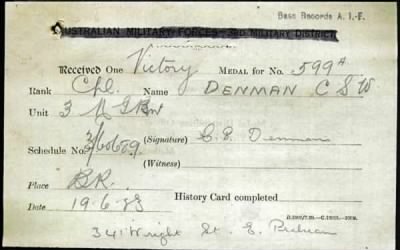 Base Records A. I.F.
AUSTRALIAN MILITARY FORCES—3RD MILITARY DISTRICT
Received One Victory MEDAL FOR No. 599A
Rank Cpl. Name DENMAN C S W
Unit 3 M G Bn
Schedule No. 3/60689 (Signature) C.E. Denman
(Witness)
Place B.R. History Card completed
Date 19.6.23
341 Wright St. E. Prahran